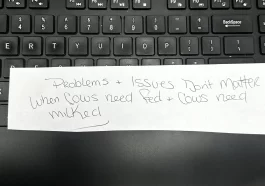 BackSpace
E R T Y U I O P
Problems + Issues Dont Matter
when Cows need fed + Cows need
milked